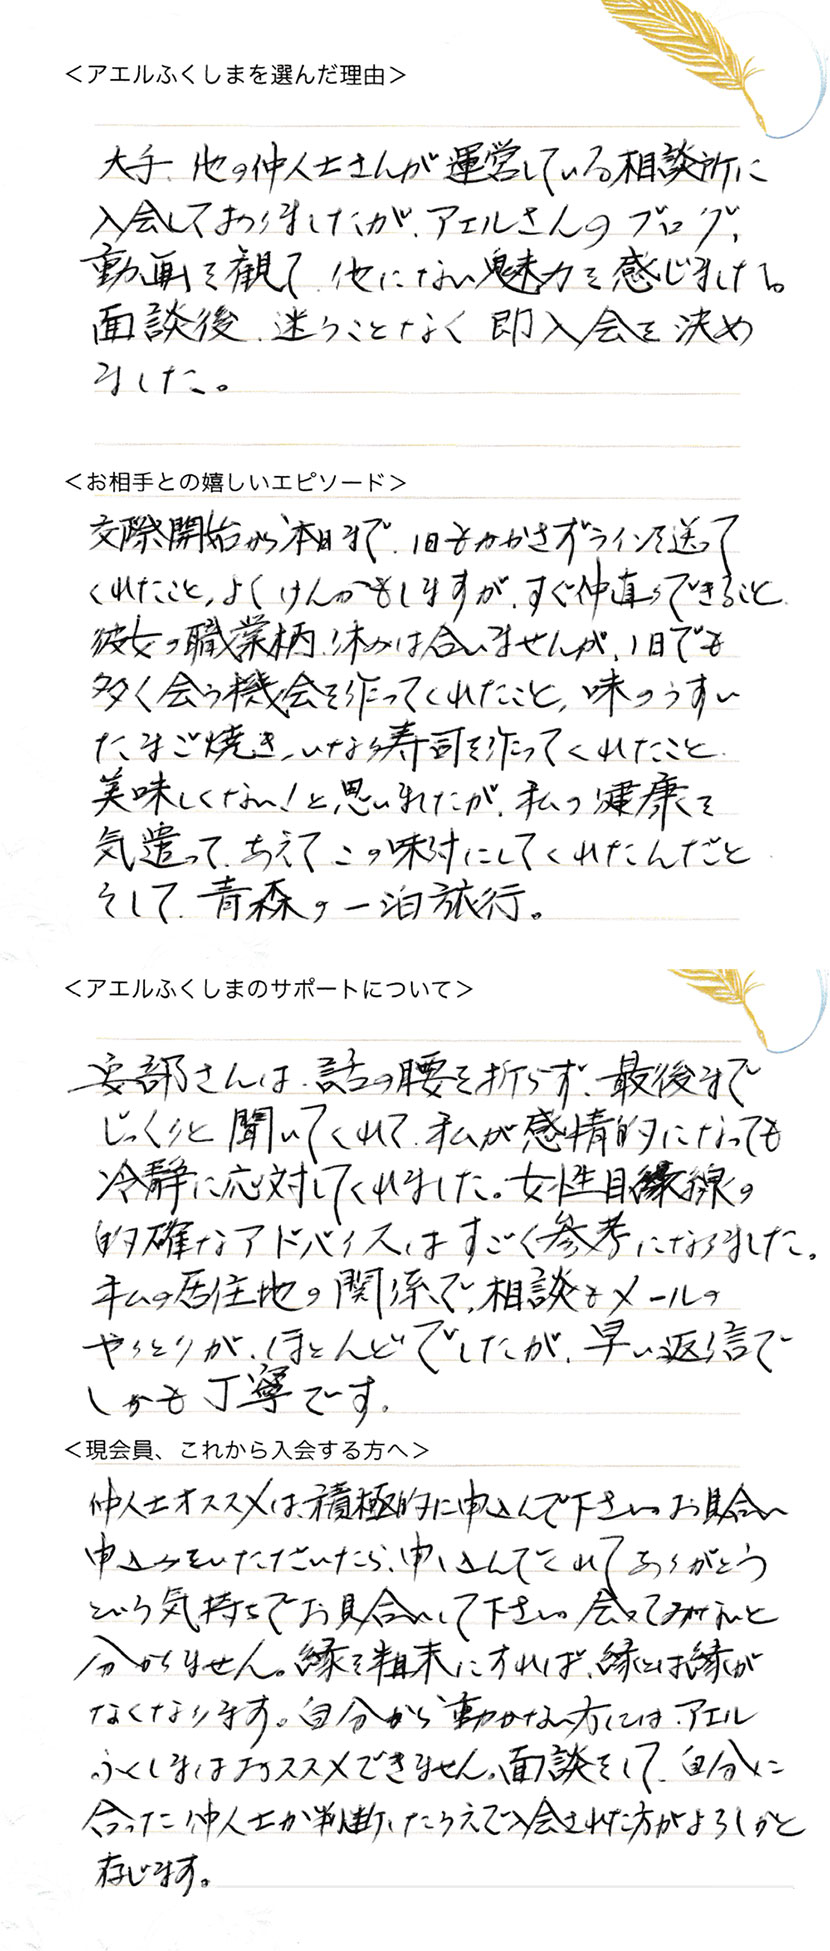 ＜アエルふくしまを選んだ理由＞
大手、他の仲人士さんが運営している相談所に
入会しておりましたが、アエルさんのブログ、
動画を観て、他にない魅力を感じました。
面談後、迷うことなく即入会を決め
ました。
＜お相手との嬉しいエピソード＞
交際開始から本日まで、1日もかかさずラインを送って
くれたこと、よくけんかもしますが、すぐ仲直りできること、
彼女の職業柄、休みは合いませんが、1日でも
多く会う機会を作ってくれたこと、味のうすい
たまご焼き、いなり寿司を作ってくれたこと、
美味しくない！と思いましたが、私の健康を
気遣って、あえてこの味付にしてくれたんだと
そして、青森の一泊旅行。
＜アエルふくしまのサポートについて＞
安部さんは、話の腰を折らず、最後まで
じっくりと聞いてくれて、私が感情的になっても
冷静に応対してくれました。女性目線の
的確なアドバイスはすごく参考になりました。
私の居住地の関係で、相談もメールの
やりとりが、ほとんどでしたが、早い返信で
しかも丁寧です。
＜現会員、これから入会する方へ＞
仲人士オススメは、積極的に申込んで下さい。お見合い
申込みをいただいたら、申し込んでくれてありがとう
という気持ちでお見合いして下さい。会ってみないと
分かりません。縁を粗末にすれば、縁とは縁が
なくなります。自分から動かない方には、アエル
ふくしまはオススメできません。面談をして、自分に
合った仲人士か判断したうえで入会された方がよろしかと
存じます。